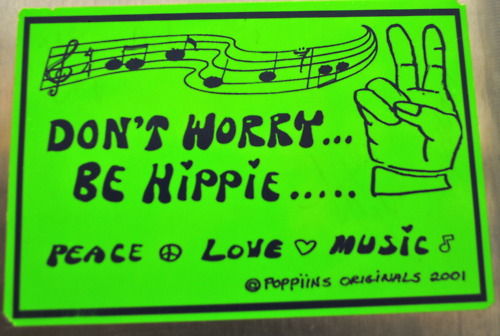 DON'T WORRY...
BE HIPPIE.....
PEACE ☮ LOVE ♡ MUSIC ♪
@ POPPIINS ORIGINALS 2001